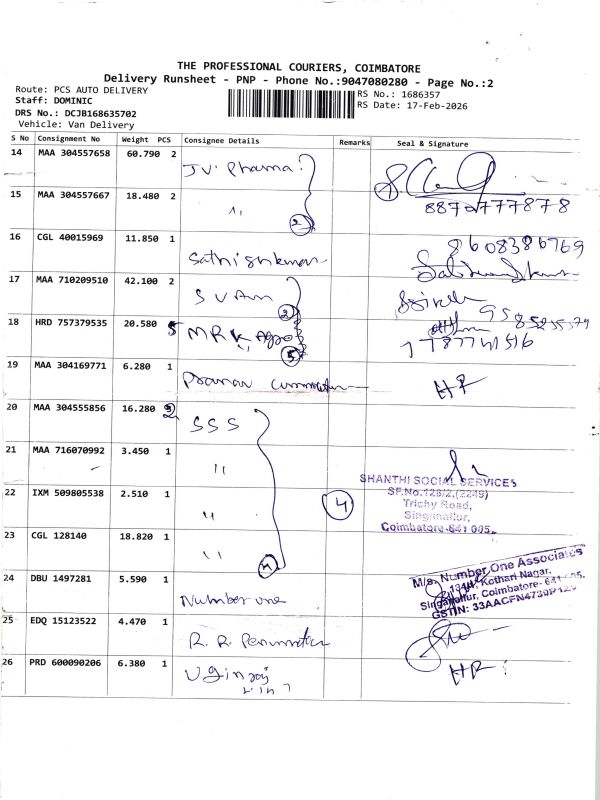 THE PROFESSIONAL COURIERS, COIMBATORE
Delivery Runsheet - PNP - Phone No.:9047080280 - Page No.:2
Route: PCS AUTO DELIVERY
RS No.: 1686357
Staff: DOMINIC
RS Date: 17-Feb-2026
DRS No.: DCJB168635702
Vehicle: Van Delivery
S No Consignment No Weight PCS Consignee Details Remarks Seal & Signature
14 MAA 304557658 60.790 2 J.V. Pharma
15 MAA 304557667 18.480 2 " 2 8870777878
16 CGL 40015969 11.850 1 Sathishkumar 8608386769
17 MAA 710209510 42.100 2 2
18 HRD 757379535 20.580 5 MRK Agro 5
19 MAA 304169771 6.280 1
20 MAA 304555856 16.280 2 SSS
21 MAA 716070992 3.450 1 "
22 IXM 509805538 2.510 1 " 4
SHANTHI SOCIAL SERVICES
SF.No.128/2,(2249)
Trichy Road,
Singanallur,
Coimbatore-641 005.
23 CGL 128140 18.820 1 " 4
24 DBU 1497281 5.590 1 Number one
M/s. Number One Associates
Kothari Nagar,
Singanallur, Coimbatore-
GSTIN:
25 EDQ 15123522 4.470 1 R.R.
26 PRD 600090206 6.380 1